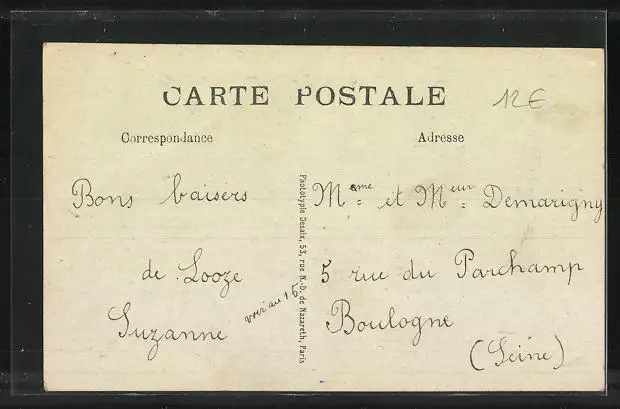 CARTE POSTALE
12 €
Correspondance
Adresse
Bons baisers
de Looze
Suzanne
voir au 15
Phototypie Desaix, 53, rue N.-D. de Nazareth, Paris
Mame et Meur Demarigny
5 rue du Parchamp
Boulogne
(Seine)